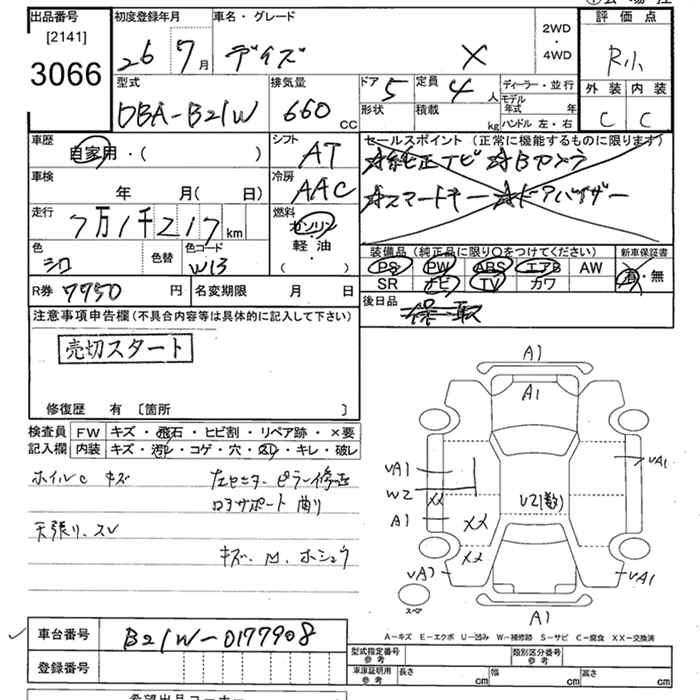 出品番号
[2141]
3066
初度登録年月
26 7月
車名・グレード
デイズ X
2WD
・
4WD
評価点
R小
外装 内装
C C
型式
DBA-B21W
排気量
660 cc
ドア 5
形状
定員 4人
積載 kg
ディーラー・並行
モデル年式 年
ハンドル 左・右
車歴
自家用・( )
シフト
AT
セールスポイント (正常に機能するものに限ります)
☆純正TV ☆Bカメラ
☆スマートキー ☆ドアバイザー
車検
年 月( 日)
冷房
AAC
走行
7万1千217km
燃料
ガソリン
軽油
( )
色
シロ
色替
色コード
W13
装備品 (純正品に限り○をつけてください)
新車保証書
PS PW ABS エアB AW
SR ナビ TV カワ
有・無
R券 7950円
名変期限 月 日
後日品
保・取
注意事項申告欄 (不具合内容等は具体的に記入して下さい)
売切スタート
修復歴 有 〔箇所 〕
検査員 FW キズ・飛石・ヒビ割・リペア跡・×要
記入欄 内装 キズ・汚レ・コゲ・穴・スレ・キレ・破レ
ホイルC キズ 左センターピラー修正
コアサポート 曲り
天張り、スレ
キズ、M、ホシュウ
A1
A1
VA1
W2
XX
A1
XX
XX
VA1
U2(数)
VA1
VA1
スペア
A1
A-キズ E-エクボ U-凹み W-補修跡 S-サビ C-腐食 XX-交換済
車台番号 B21W-0177908
登録番号
型式指定番号
参考
類別区分番号
参考
車庫証明用
参考
長さ cm 幅 cm 高さ cm
希望出品コーナー